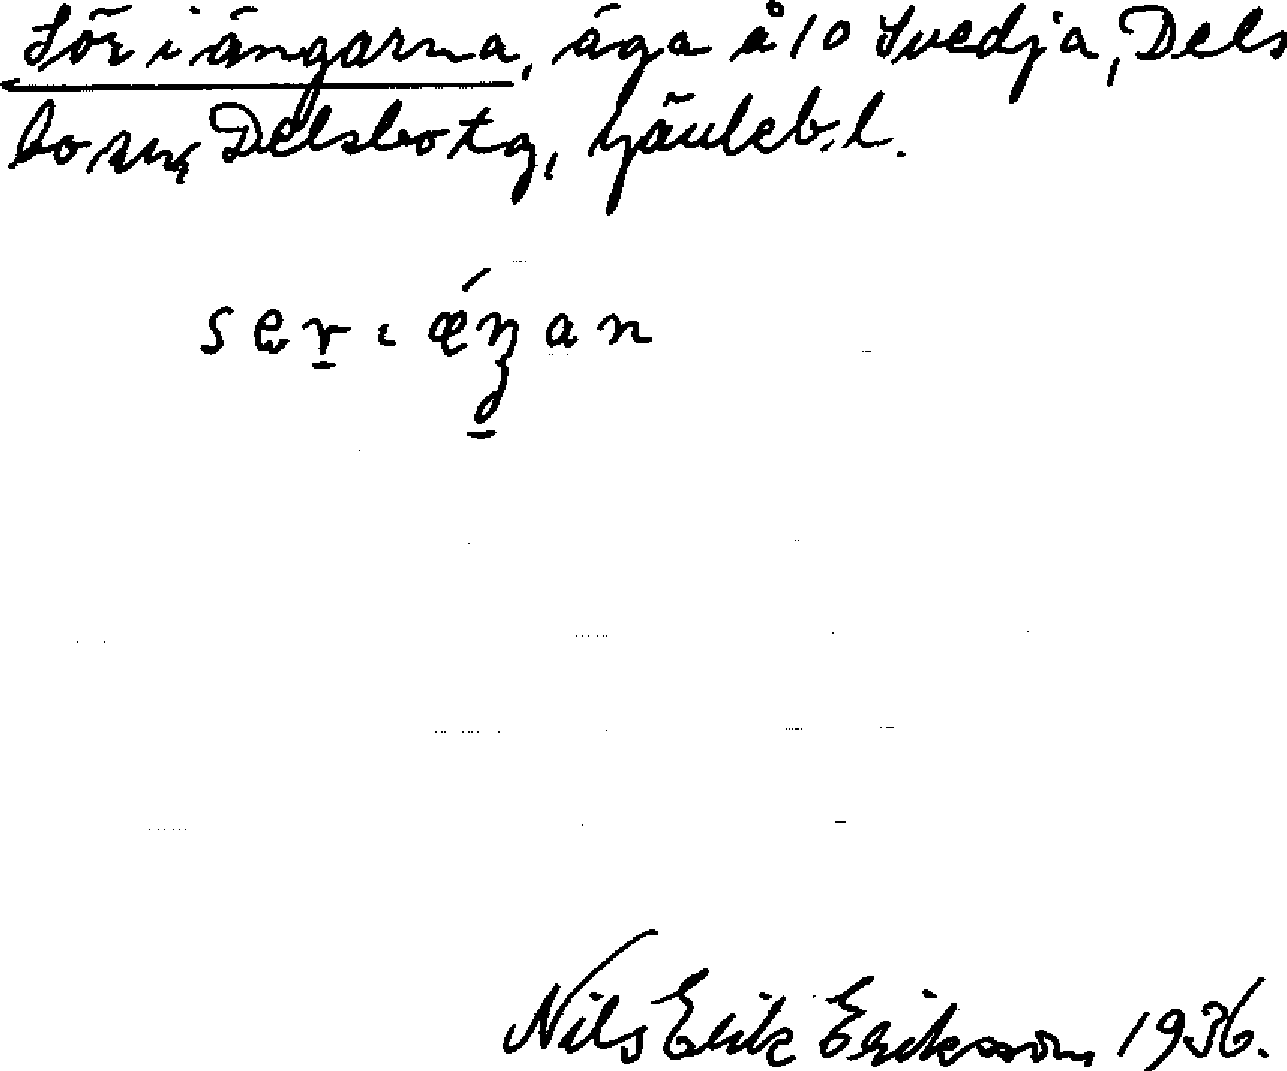 Sör i ängarna, äga å 10 Svedja, Dels
bo sn, Delsbo tg, Gävleb. l.
Nils Erik Eriksson 1936.